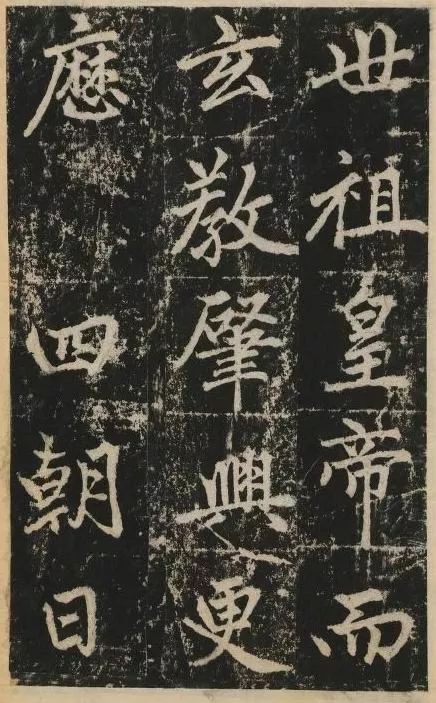 世祖皇帝而
玄教肇興更
歷四朝日